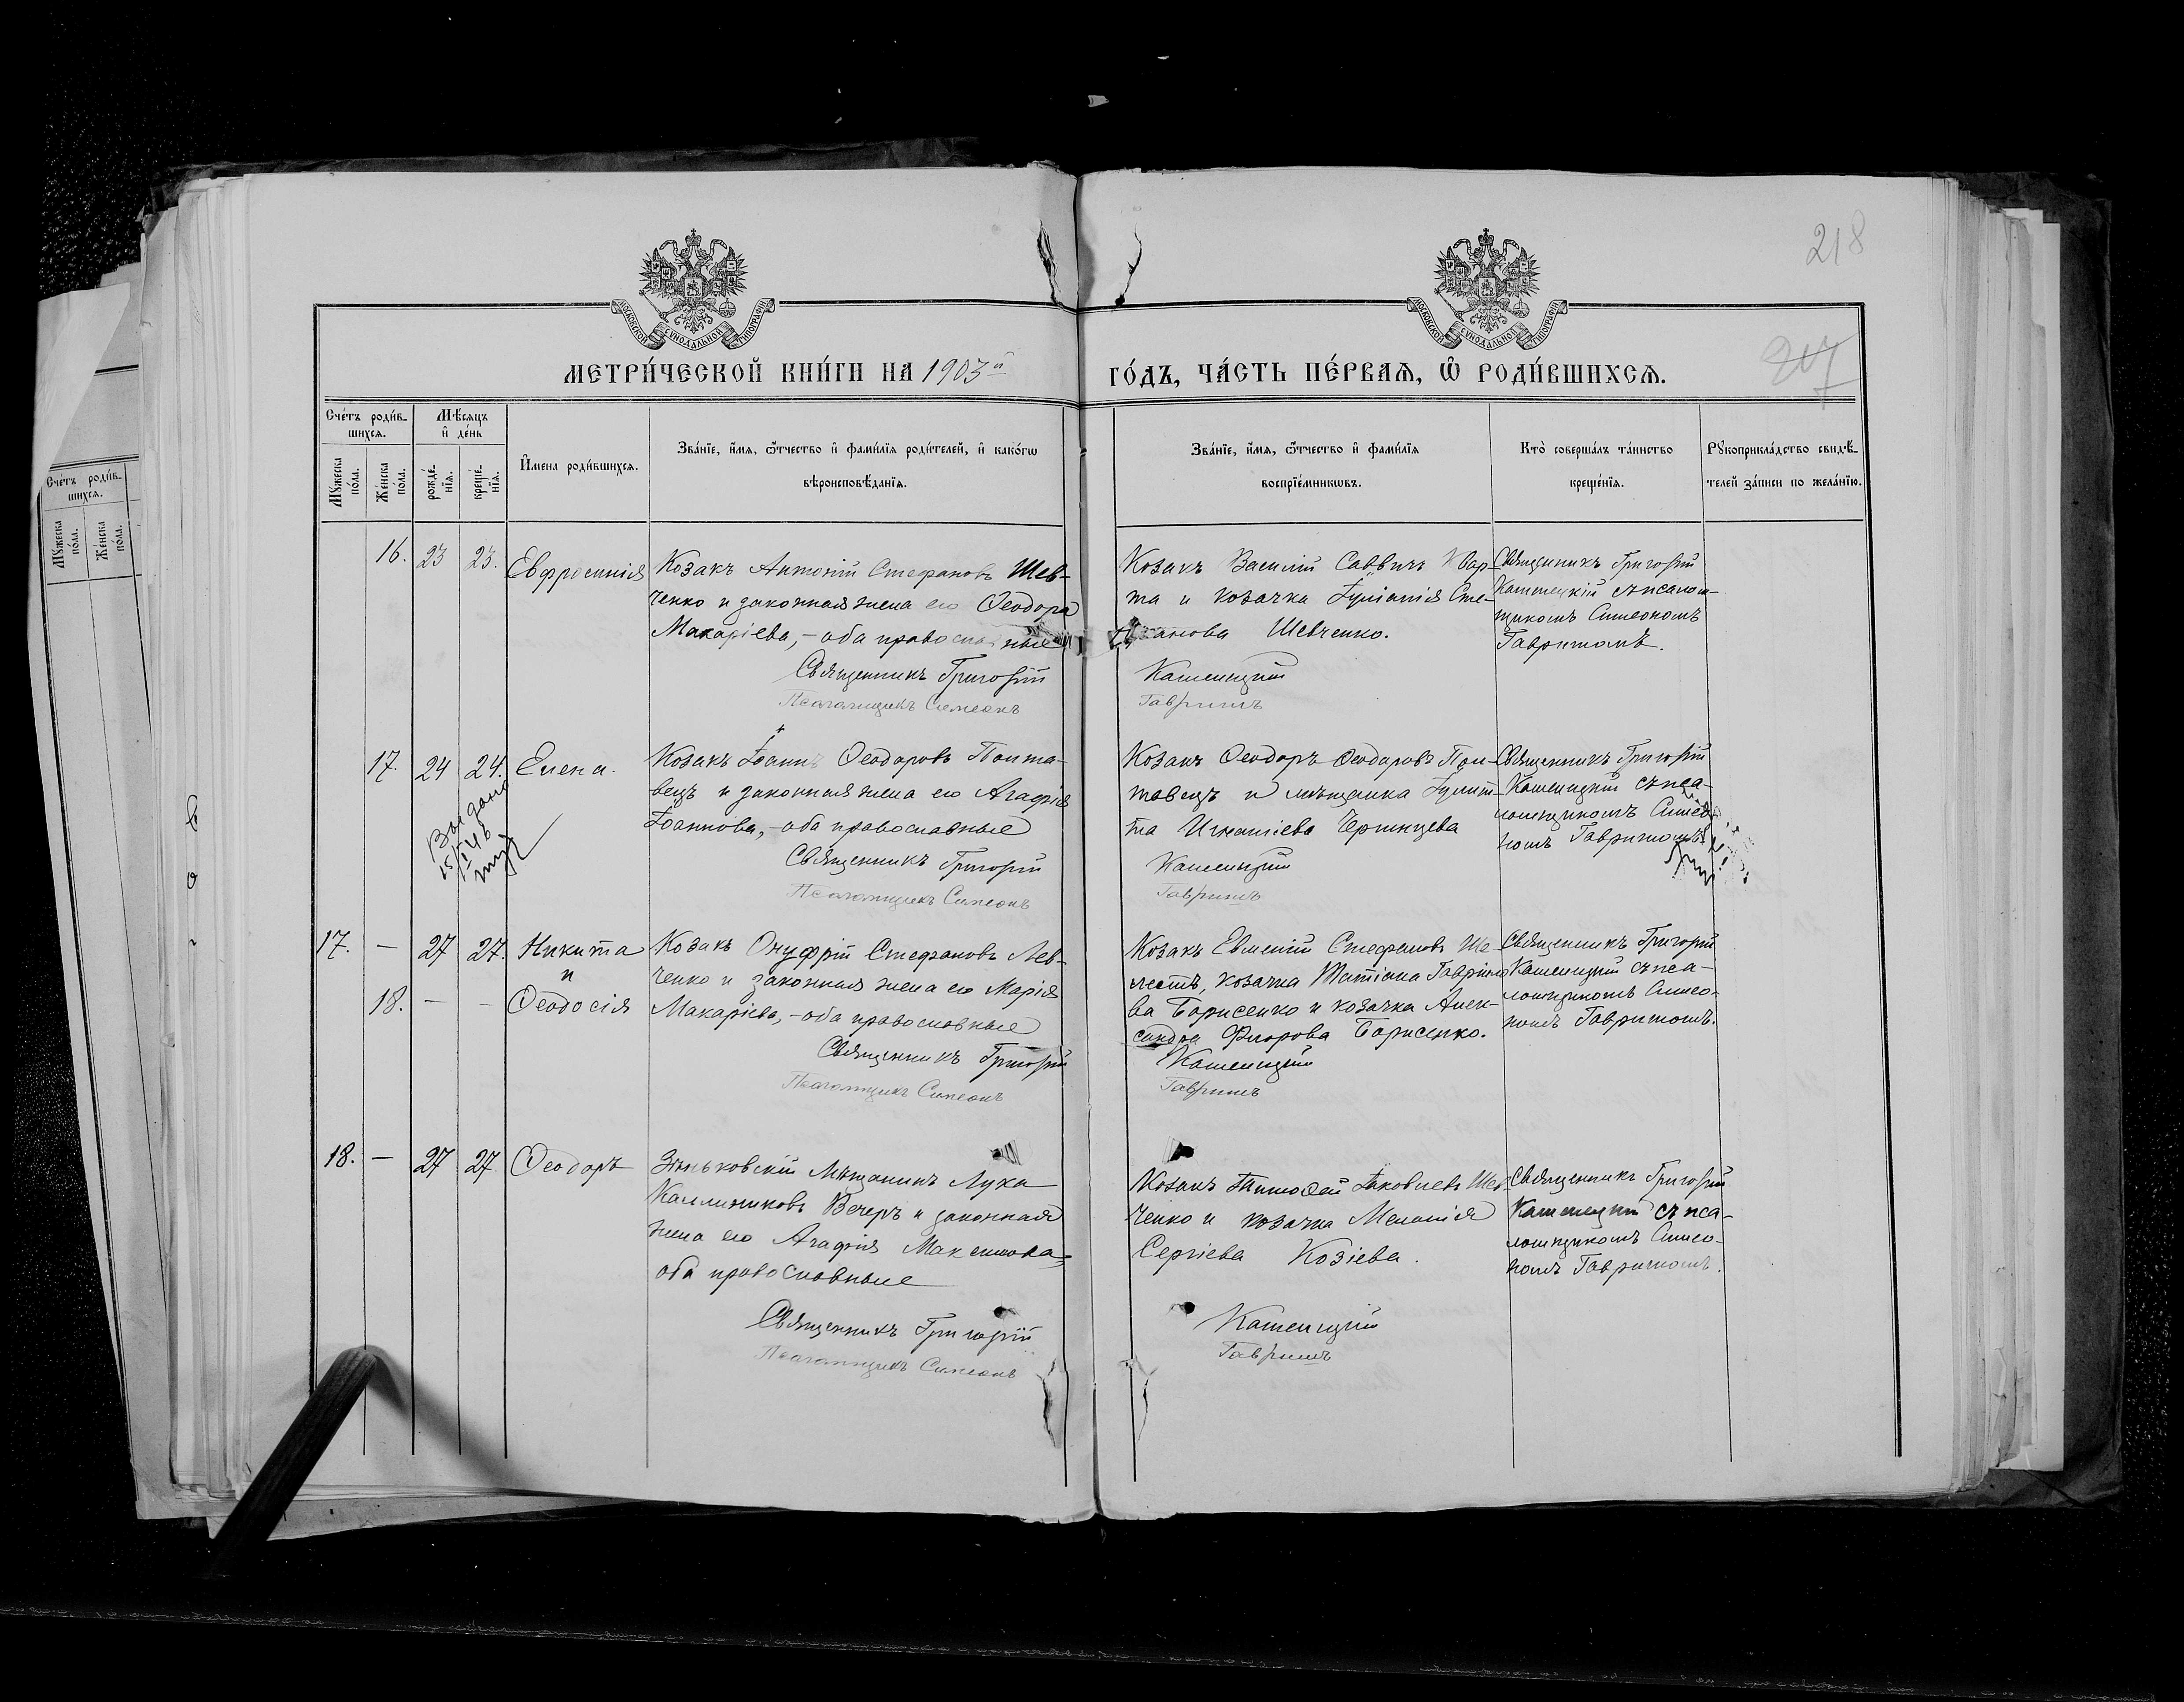 218
217
МОСКОВСКОЙ СѴНОДАЛЬНОЙ ТИПОГРАФІИ
МОСКОВСКОЙ СѴНОДАЛЬНОЙ ТИПОГРАФІИ
МЕТРИ́ЧЕСКОЙ КНИ́ГИ НА 1903й
ГО́ДЪ, ЧА́СТЬ ПЕ́РВАѦ, Ѡ҆ РОДИ́ВШИХСѦ.
Сче́тъ роди́в-
шихсѧ.
Мꙋжеска по́ла.
Же́нска по́ла.
Мѣ́сѧцъ
и҆ де́нь
рожде́-
нїѧ.
креще́-
нїѧ.
И҆мена роди́вшихсѧ.
Зва́нїе, и҆́мѧ, ѻ҆́тчество и҆ фами́лїѧ роди́телей, и҆ како́гѡ
вѣроисповѣ́данїѧ.
Зва́нїе, и҆́мѧ, ѻ҆́тчество и҆ фами́лїѧ
воспрїе́мникѡвъ.
Кто̀ соверша́лъ та́инство
креще́нїѧ.
Рꙋкоприкла́дство свидѣ́-
телей за́писи по жела́нїю.
Сче́тъ роди́в-
шихсѧ.
Мꙋжеска по́ла.
Же́нска по́ла.
16. 23 23. Евфросинія
Козакъ Антоній Стефановъ Шев-
ченко и законная жена его Ѳеодора
Макаріева, - оба православные
Священникъ Григорій
Псаломщикъ Симеонъ
Козакъ Василій Саввичъ Квар-
та и козачка Іуліанія Сте-
фанова Шевченко.
Кашенцкій
Гавришъ
Священникъ Григорій
съ псалом-
щикомъ Симеономъ
Гавришомъ.
17. 24 24. Елена.
Выдано
Козакъ Іоаннъ Ѳеодоровъ Полта-
вецъ и законная жена его Агафія
Іоаннова, - оба православные
Священникъ Григорій
Псаломщикъ Симеонъ
Козакъ Ѳеодоръ Ѳеодоровъ Пол-
тавецъ и мѣщанка Іулит-
та Игнатіева Чернцева
Кашенцкій
Гавришъ
Священникъ Григорій
Кашенцкій съ пса-
ломщикомъ Симео-
номъ Гавришомъ
17. — 27 27. Никита
и
18. — — Ѳеодосія
Козакъ Онуфрій Стефановъ Лев-
ченко и законная жена его Марія
Макаріева, - оба православные
Священникъ Григорій
Псаломщикъ Симеонъ
Козакъ Евменій Стефановъ Ше-
лестъ, козачка Татіана Гавріило-
ва Борисенко и козачка Алек-
сандра Флорова Борисенко.
Кашенцкій
Гавришъ
Священникъ Григорій
Кашенцкій съ пса-
ломщикомъ Симео-
номъ Гавришомъ.
18. — 27 27 Ѳеодоръ
Зѣньковскій Мѣщанинъ Лука
Каллиниковъ Вечеръ и законная
жена его Агафія Максимова,
оба православные
Священникъ Григорій
Псаломщикъ Симеонъ
Козакъ Тимоѳей Іаковлевъ Шев-
ченко и козачка Меланія
Сергіева Козіева.
Кашенцкій
Гавришъ
Священникъ Григорій
Кашенцкій съ пса-
ломщикомъ Симео-
номъ Гавришомъ.